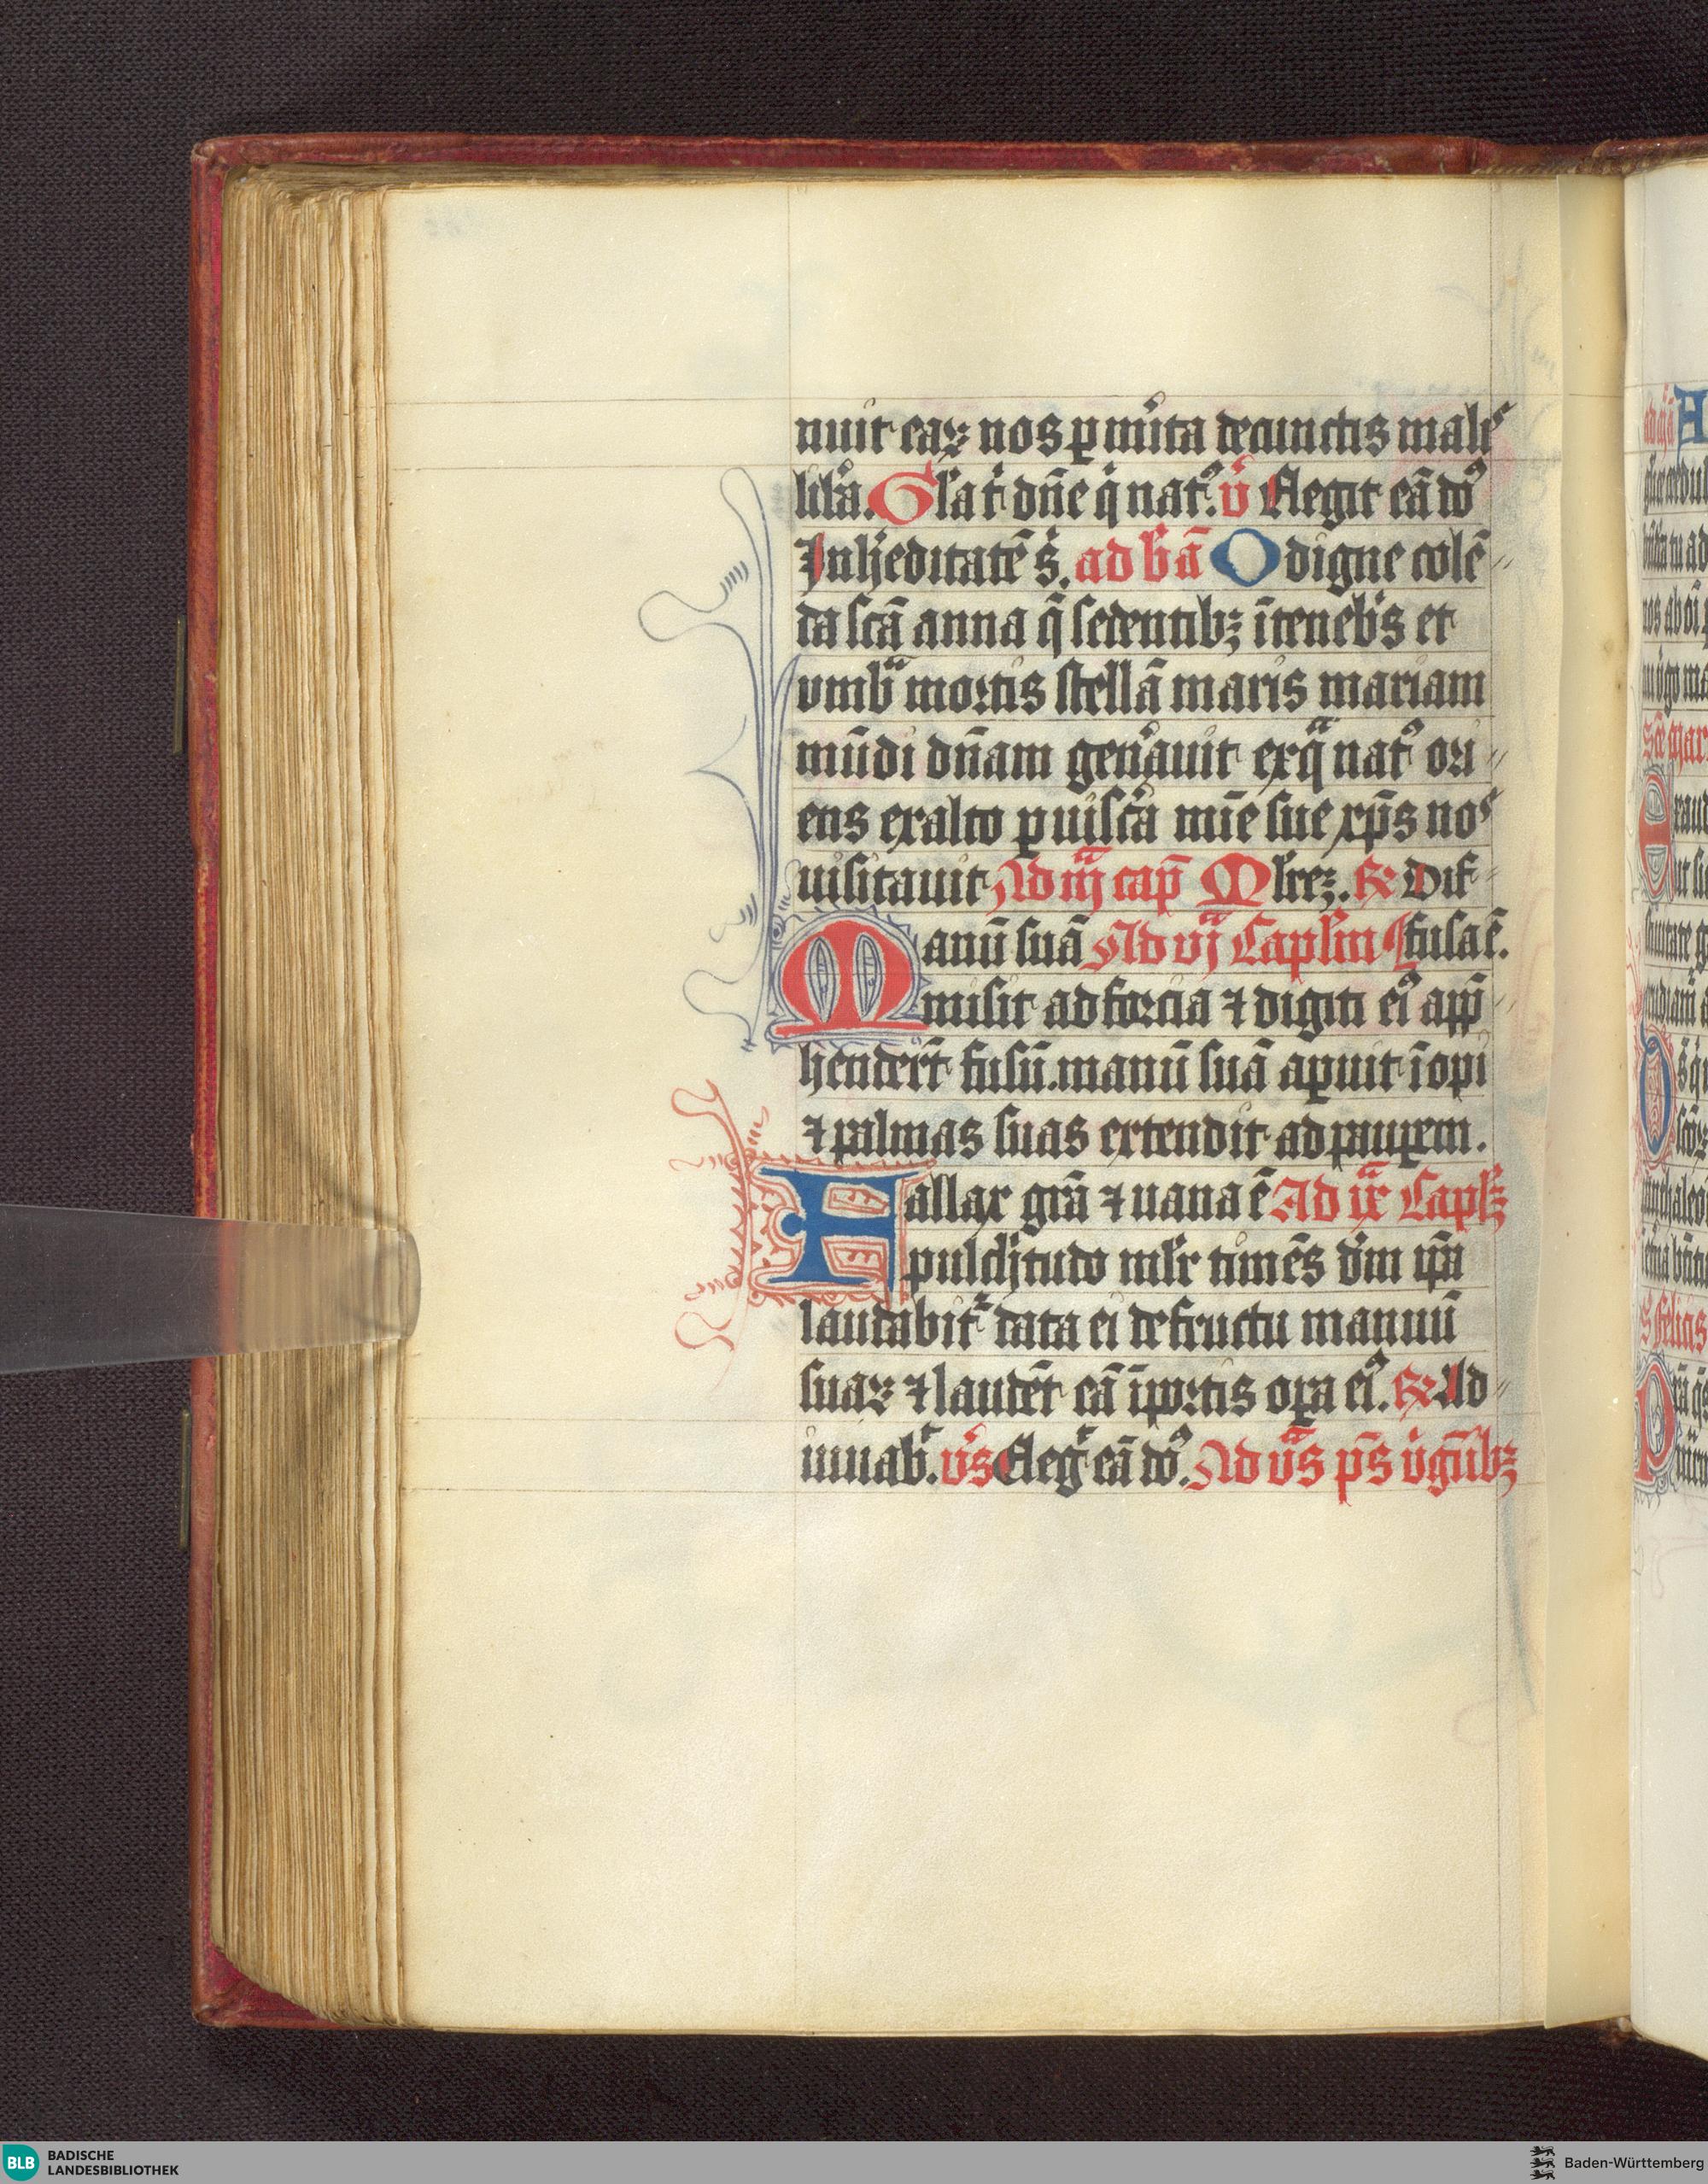 nuit eaꝝ nos ꝑ mͥita de cunctis malꝭ
lib̾a. Gl̾a t̾ dn̄e qͥ nat᷒. v̾ Elegit eā do᷒
In h̾editatē s̾. ad b̾n̄ O digne colē
da scā anna q̄ sedentibꝫ ītenebͥs et
vmbᷓ mortis stellā maris mariam
mūdi dn̄am gen̾auit ex qᷓ nat᷒ ori
ens ex alto ꝑ uisc̾a mīe sue xp̄s noˢ
uisitauit Ad iijᷓ cap̄ Ml̾reꝫ. ꝶ Dif
anū suā Ad vjᷓ Capl̾m fusa ē.
M misit ad forcia ⁊ digiti ei᷒ app̄
hender̄t fusū. manū suā aꝑuit īopi
⁊ palmas suas extendit ad pauꝑem.
Fallax gr̄a ⁊ uana ē Ad ixᷓ Capl̾ꝫ
pulchͥtudo ml̾r timēs dn̄m ip̄a
laudabit᷑ data ei de fructu manuū
suaꝝ ⁊ laudēt eā īportis oꝑa ei᷒. ꝶ Ad
iuuab᷑. v̾s Elegͥ eā do᷒. Ad vᷓs p̄s v̾gīībꝫ
BLB BADISCHE
LANDESBIBLIOTHEK
Baden-Württemberg